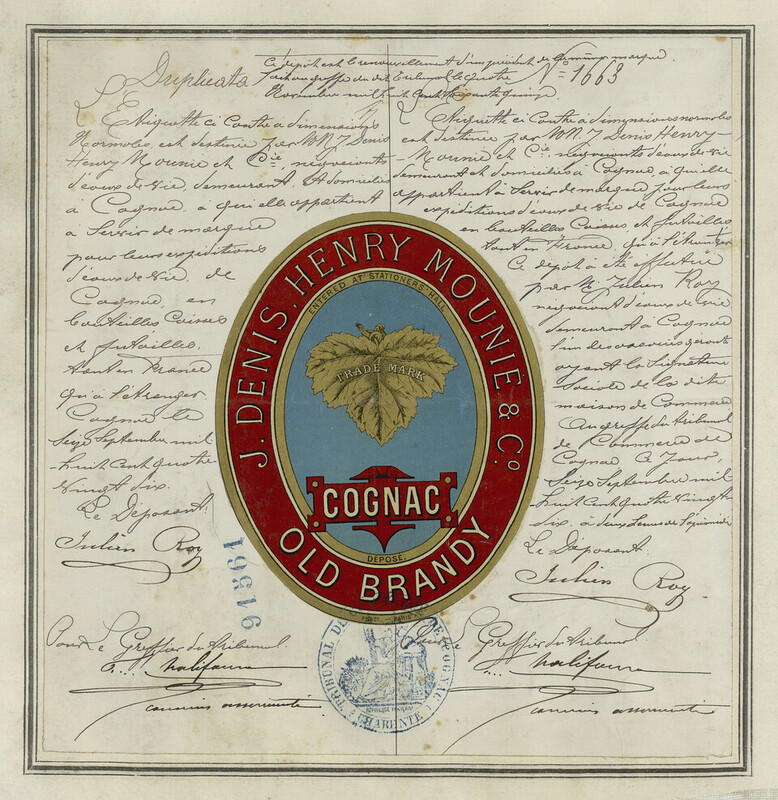 Duplicata
Ce dépôt est le renouvellement d'un précédent de la même marque
fait au greffe du dit Tribunal le quatre
Novembre mil huit cent soixante quinze
N° 1663
L'Etiquette ci Contre à dimensions
Normales, est destinée par MM J. Denis
Henry Mounie et Cie négociants
d'eaux de vie, demeurant et domiciliés
à Cognac, à qui elle appartient
à Servir de marque
pour leurs expéditions
d'eaux de vie de
Cognac en
bouteilles Caisses
et futailles,
tant en France
qu'à l'étranger
Cognac le
Seize Septembre mil
huit Cent quatre
vingt dix.
Le Déposant.
Julien Roy
L'Etiquette ci Contre à dimensions normales
est destinée par MM J Denis Henry-
Mounie et Cie négociants d'eaux de vie
demeurant et domiciliés à Cognac, à qui elle
appartient à Servir de marque pour leurs
expéditions d'eaux de vie de Cognac
en bouteilles Caisses et futailles
tant en France qu'à l'étranger
Ce dépôt a été effectué
par M. Julien Roy
négociant d'eaux de vie
demeurant à Cognac
l'un des associés gérants
ayant la Signature
Sociale de la dite
maison de Commerce
Au greffe du tribunal
de Commerce de
Cognac Ce Jour,
Seize Septembre mil
huit Cent quatre vingt
dix. à deux heures de
Le Déposant.
Julien Roy
J. DENIS, HENRY MOUNIÉ & Cº
ENTERED AT STATIONERS' HALL
TRADE MARK
COGNAC
DÉPOSÉ.
OLD BRANDY
91361
Pour le Greffier du tribunal
commis assermenté
Pour le Greffier du Tribunal
commis assermenté
TRIBUNAL DE COGNAC
CHARENTE